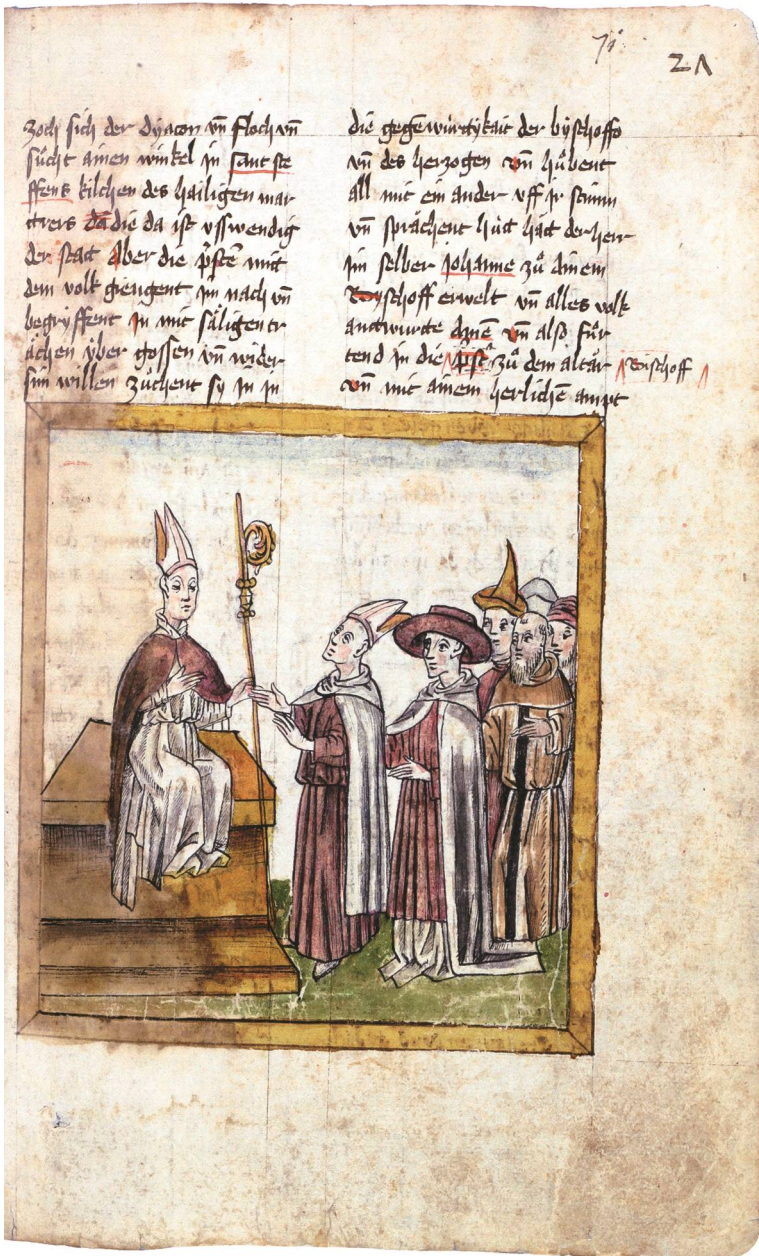 71
21
zoch sich der dyacon vn̄ floch vn̄
sůcht ainen winkel in sant ste
ffens kilchen des hailigen mar
trers da die da ist vsswendig
der stat Aber die p̄stē mit
dem volk giengent im nach vn̄
begryffent in mit säligen tr
ächen ÿber gossen vn̄ wider
sin willen zůchent sy in in
die gegẽwürtykait der byschoffe
vn̄ des herzogen vn̄ hůbent
all mit ein ander vff ir stimm
vn̄ sprächent hüt hăt der herr
im selber Johanne zů ainem
Byschoff erwelt vn̄ alles volk
antwurte Amē vn̄ also fůr
tend in die p̄st zů dem altăr Bischoff
vn̄ mit ainem herlichē ampt